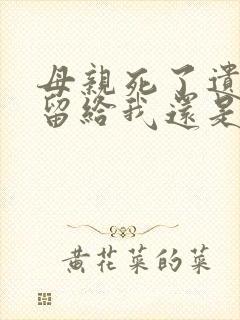 母親死了遺
留給我還是
黃花菜的菜